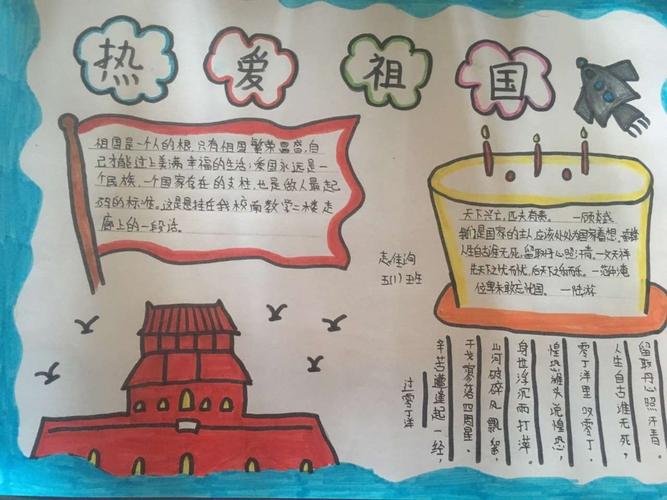 热爱祖国
祖国是一个人的根,只有祖国繁荣富强,自
己才能过上美满幸福的生活;爱国永远是一
个民族、一个国家存在的支柱,也是做人最起
码的标准。这是悬挂在我校南教学二楼走
廊上的一段话。
五(1)班
天下兴亡,匹夫有责。 —顾炎武
我们是国家的主人,应该处处为国家着想。—雷锋
人生自古谁无死,留取丹心照汗青。—文天祥
先天下之忧而忧,后天下之乐而乐。—范仲淹
位卑未敢忘忧国。 —陆游
过零丁洋
辛苦遭逢起一经,
干戈寥落四周星。
山河破碎风飘絮,
身世浮沉雨打萍。
惶恐滩头说惶恐,
零丁洋里叹零丁。
人生自古谁无死,
留取丹心照汗青。